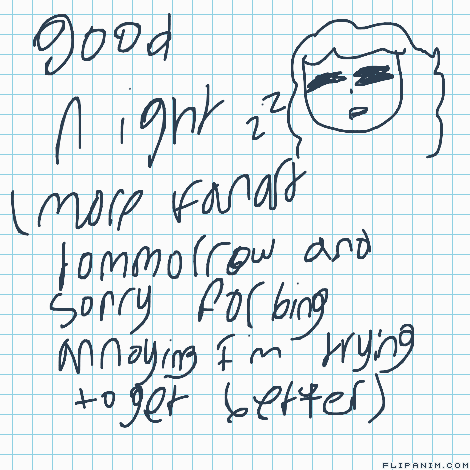 good
night zz
(more fanart
tommorrow and
sorry for bing
annoying I'm trying
to get better)
FLIPANIM.COM